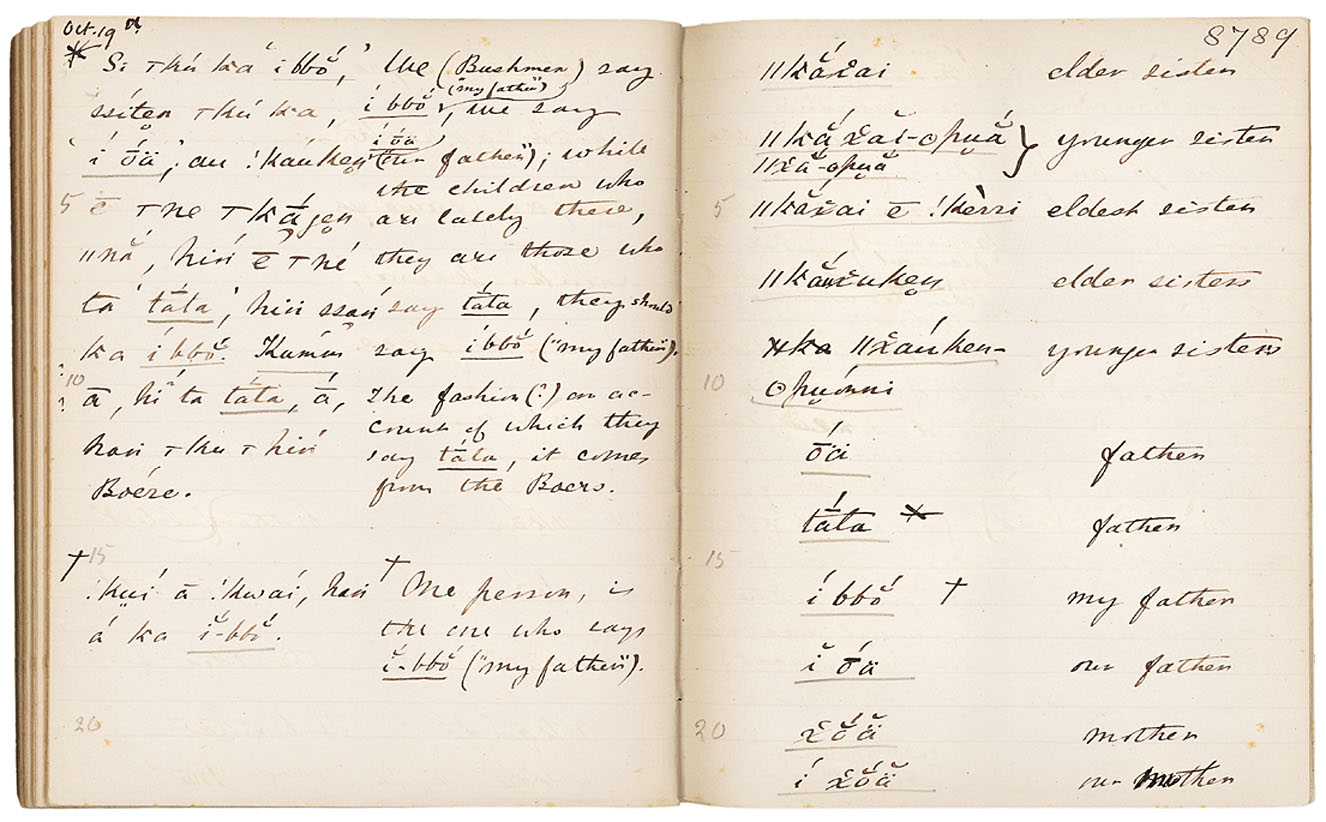 Oct. 19th
Si ⊤kú ka ˈí bbŏ́ˈ, We (Bushmen) say
ssíten ⊤kú ka, í bbŏ́ ("my father"), we say
ˈí ṓä, au !kaúken í ṓä (our father); while
the children who
5 ē ⊤ne ⊤kā́gen are lately there,
ǁnắ, hiń ē ⊤né they are those who
ta ˈtā́taˈ, hiń ssań say tā́ta, they should
ka í bbŏ́. Kamm say í bbŏ́ ("my father").
10 ā, hĭ́ ta tā́ta, ā́, The fashion (?) on ac-
count of which they
han ⊤ku ⊤hiń say tā́ta, it comes
Boére. from the Boers.
† 15 †
!kuí ā !kwaí, han One person, is
á ka ĭ́-bbŏ́. the one who says
ĭ́-bbŏ́ ("my father").
20
8789
ǁkắx̱ai elder sister
ǁkắx̱ắi-ʘpuắ } younger sister
ǁx̱ắ-ʘpuắ
5 ǁkắx̱ai ē !kèrri eldest sister
ǁkắx̱uken elder sisters
ǁx̱áuken- younger sisters
10 ʘpuónni
ṓäi father
tā́ta * father
15
í bbŏ́ † my father
ĭ ṓä our father
20 x̱ŏ́ä̆ mother
í x̱ŏ́ä̆ our mother